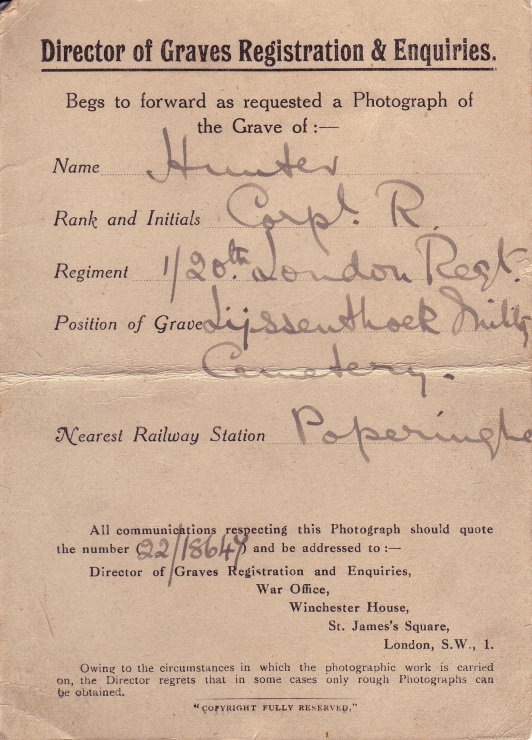 Director of Graves Registration & Enquiries.
Begs to forward as requested a Photograph of
the Grave of :—
Name Hunter
Rank and Initials Corpl. R.
Regiment 1/20th. London Regt.
Position of Grave Lijssenthoek Milty
Cemetery.
Nearest Railway Station Poperinghe
All communications respecting this Photograph should quote
the number (22/18647) and be addressed to :—
Director of Graves Registration and Enquiries,
War Office,
Winchester House,
St. James's Square,
London, S.W., 1.
Owing to the circumstances in which the photographic work is carried
on, the Director regrets that in some cases only rough Photographs can
be obtained.
"COPYRIGHT FULLY RESERVED."